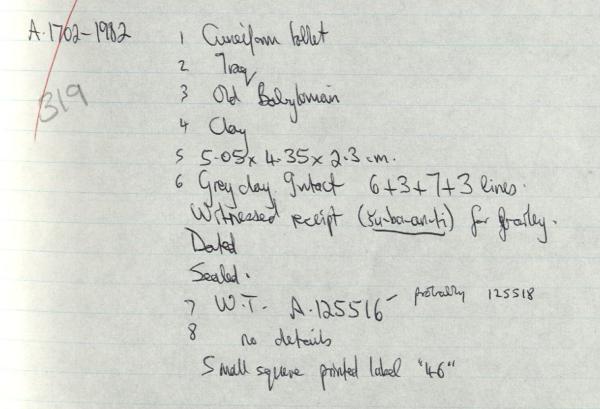 A.1702-1982
319
1 Cuneiform tablet
2 Iraq
3 Old Babylonian
4 Clay
5 5.05 x 4.35 x 2.3 cm.
6 Grey clay. Intact 6+3+7+3 lines.
Witnessed receipt (šu-ba-an-ti) for barley.
Dated
Sealed.
7 W.T. A.125516 – probably 125518
8 no details
Small square printed label "46"